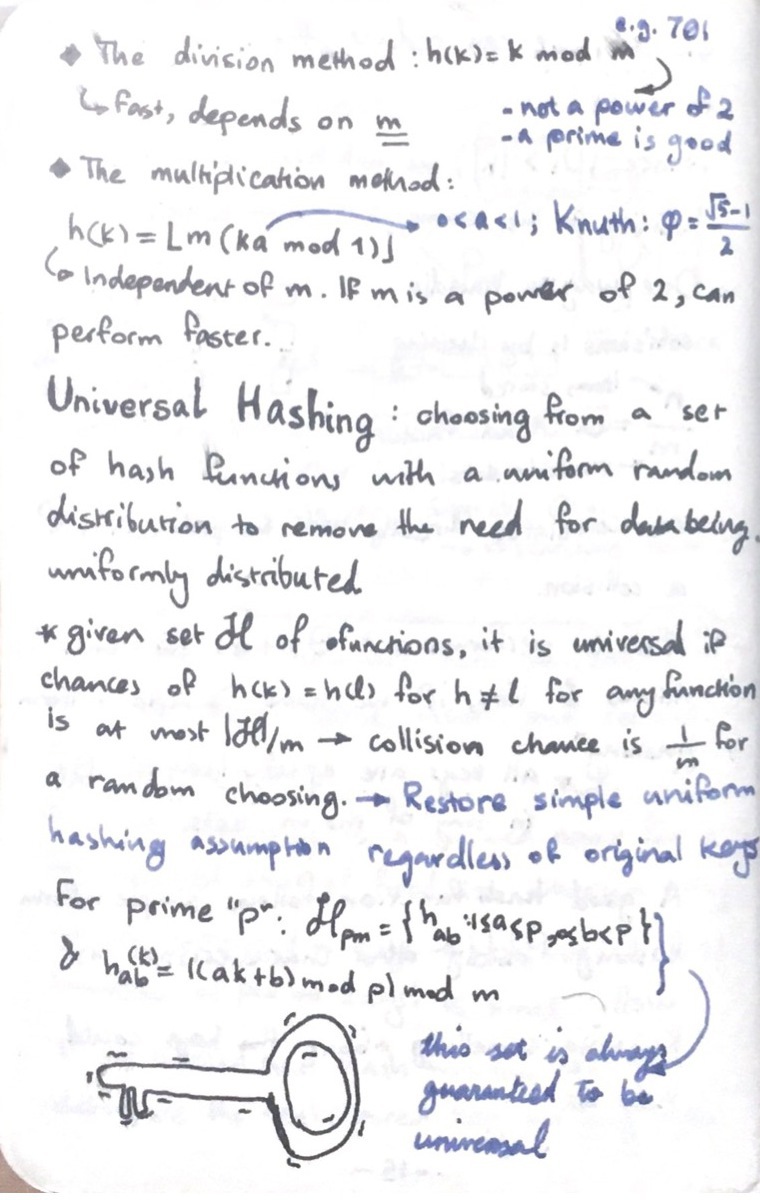 e.g. 701
◆ The division method : h(k) = k mod m
↳ Fast, depends on m
- not a power of 2
- a prime is good
◆ The multiplication method:
h(k) = ⌊m (ka mod 1)⌋ → 0<a<1; Knuth: φ = (√5-1)/2
↳ Independent of m. If m is a power of 2, can
perform faster.
Universal Hashing : choosing from a set
of hash functions with a uniform random
distribution to remove the need for data being
uniformly distributed
* given set ℋ of functions, it is universal if
chances of h(k) = h(l) for h ≠ l for any function
is at most |ℋ|/m → collision chance is 1/m for
a random choosing. → Restore simple uniform
hashing assumption regardless of original keys
For prime "p": ℋpm = {h ab : 1≤a<p, 0≤b<p}
& h ab (k) = ((ak+b) mod p) mod m
this set is always
guaranteed to be
universal